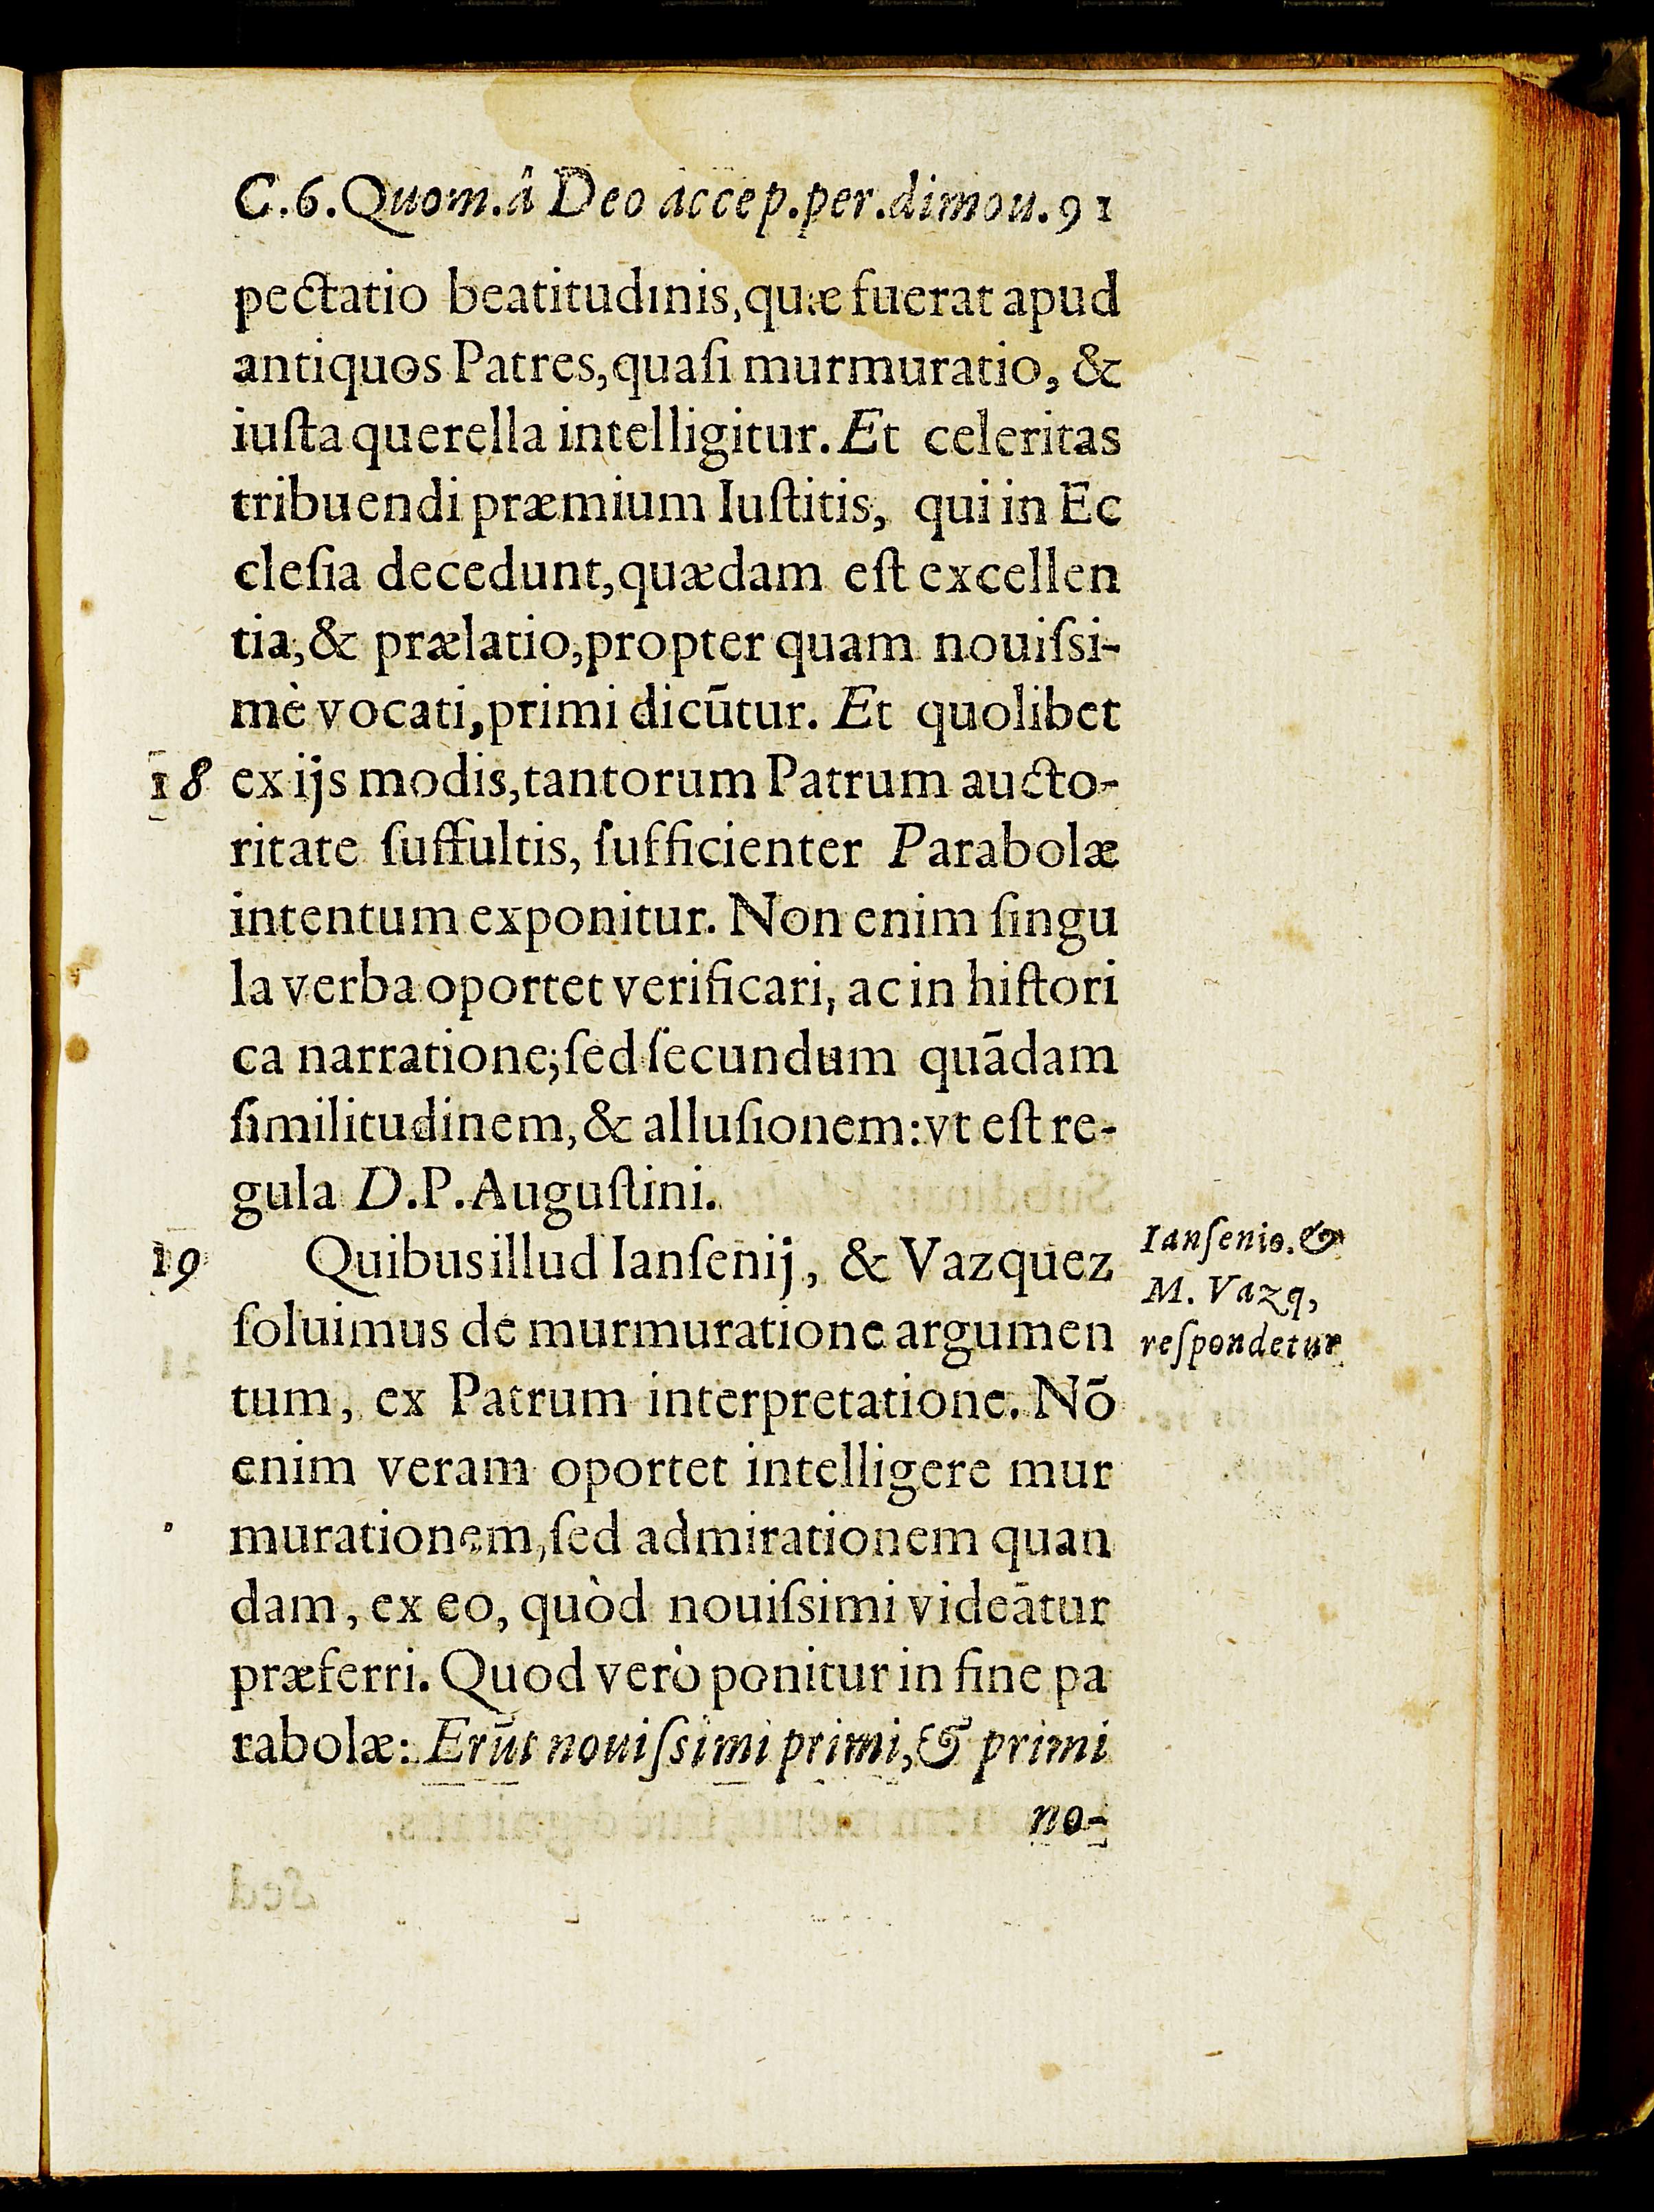 C.6.Quom.â Deo accep.per.dimou.91
pectatio beatitudinis,quæ fuerat apud
antiquos Patres,quaſi murmuratio, &
iuſta querella intelligitur. Et celeritas
tribuendi præmium Iuſtitis, qui in Ec
cleſia decedunt,quædam eſt excellen
tia,& prælatio,propter quam nouiſsi-
mè vocati,primi dicūtur. Et quolibet
18 ex ijs modis,tantorum Patrum aucto-
ritate ſuffultis, ſufficienter Parabolæ
intentum exponitur. Non enim ſingu
la verba oportet verificari, ac in hiſtori
ca narratione;ſed ſecundum quādam
ſimilitudinem,& alluſionem:vt eſt re-
gula D.P.Auguſtini.
19 Quibus illud Ianſenij, & Vazquez
ſoluimus de murmuratione argumen
tum, ex Patrum interpretatione. Nō
enim veram oportet intelligere mur
murationem,ſed admirationem quan
dam, ex eo, quòd nouiſsimi videātur
præferri. Quod verò ponitur in fine pa
rabolæ: Erūt nouiſsimi primi,& primi
no-
Ianſenio.&
M. Vazq,
reſpondetur